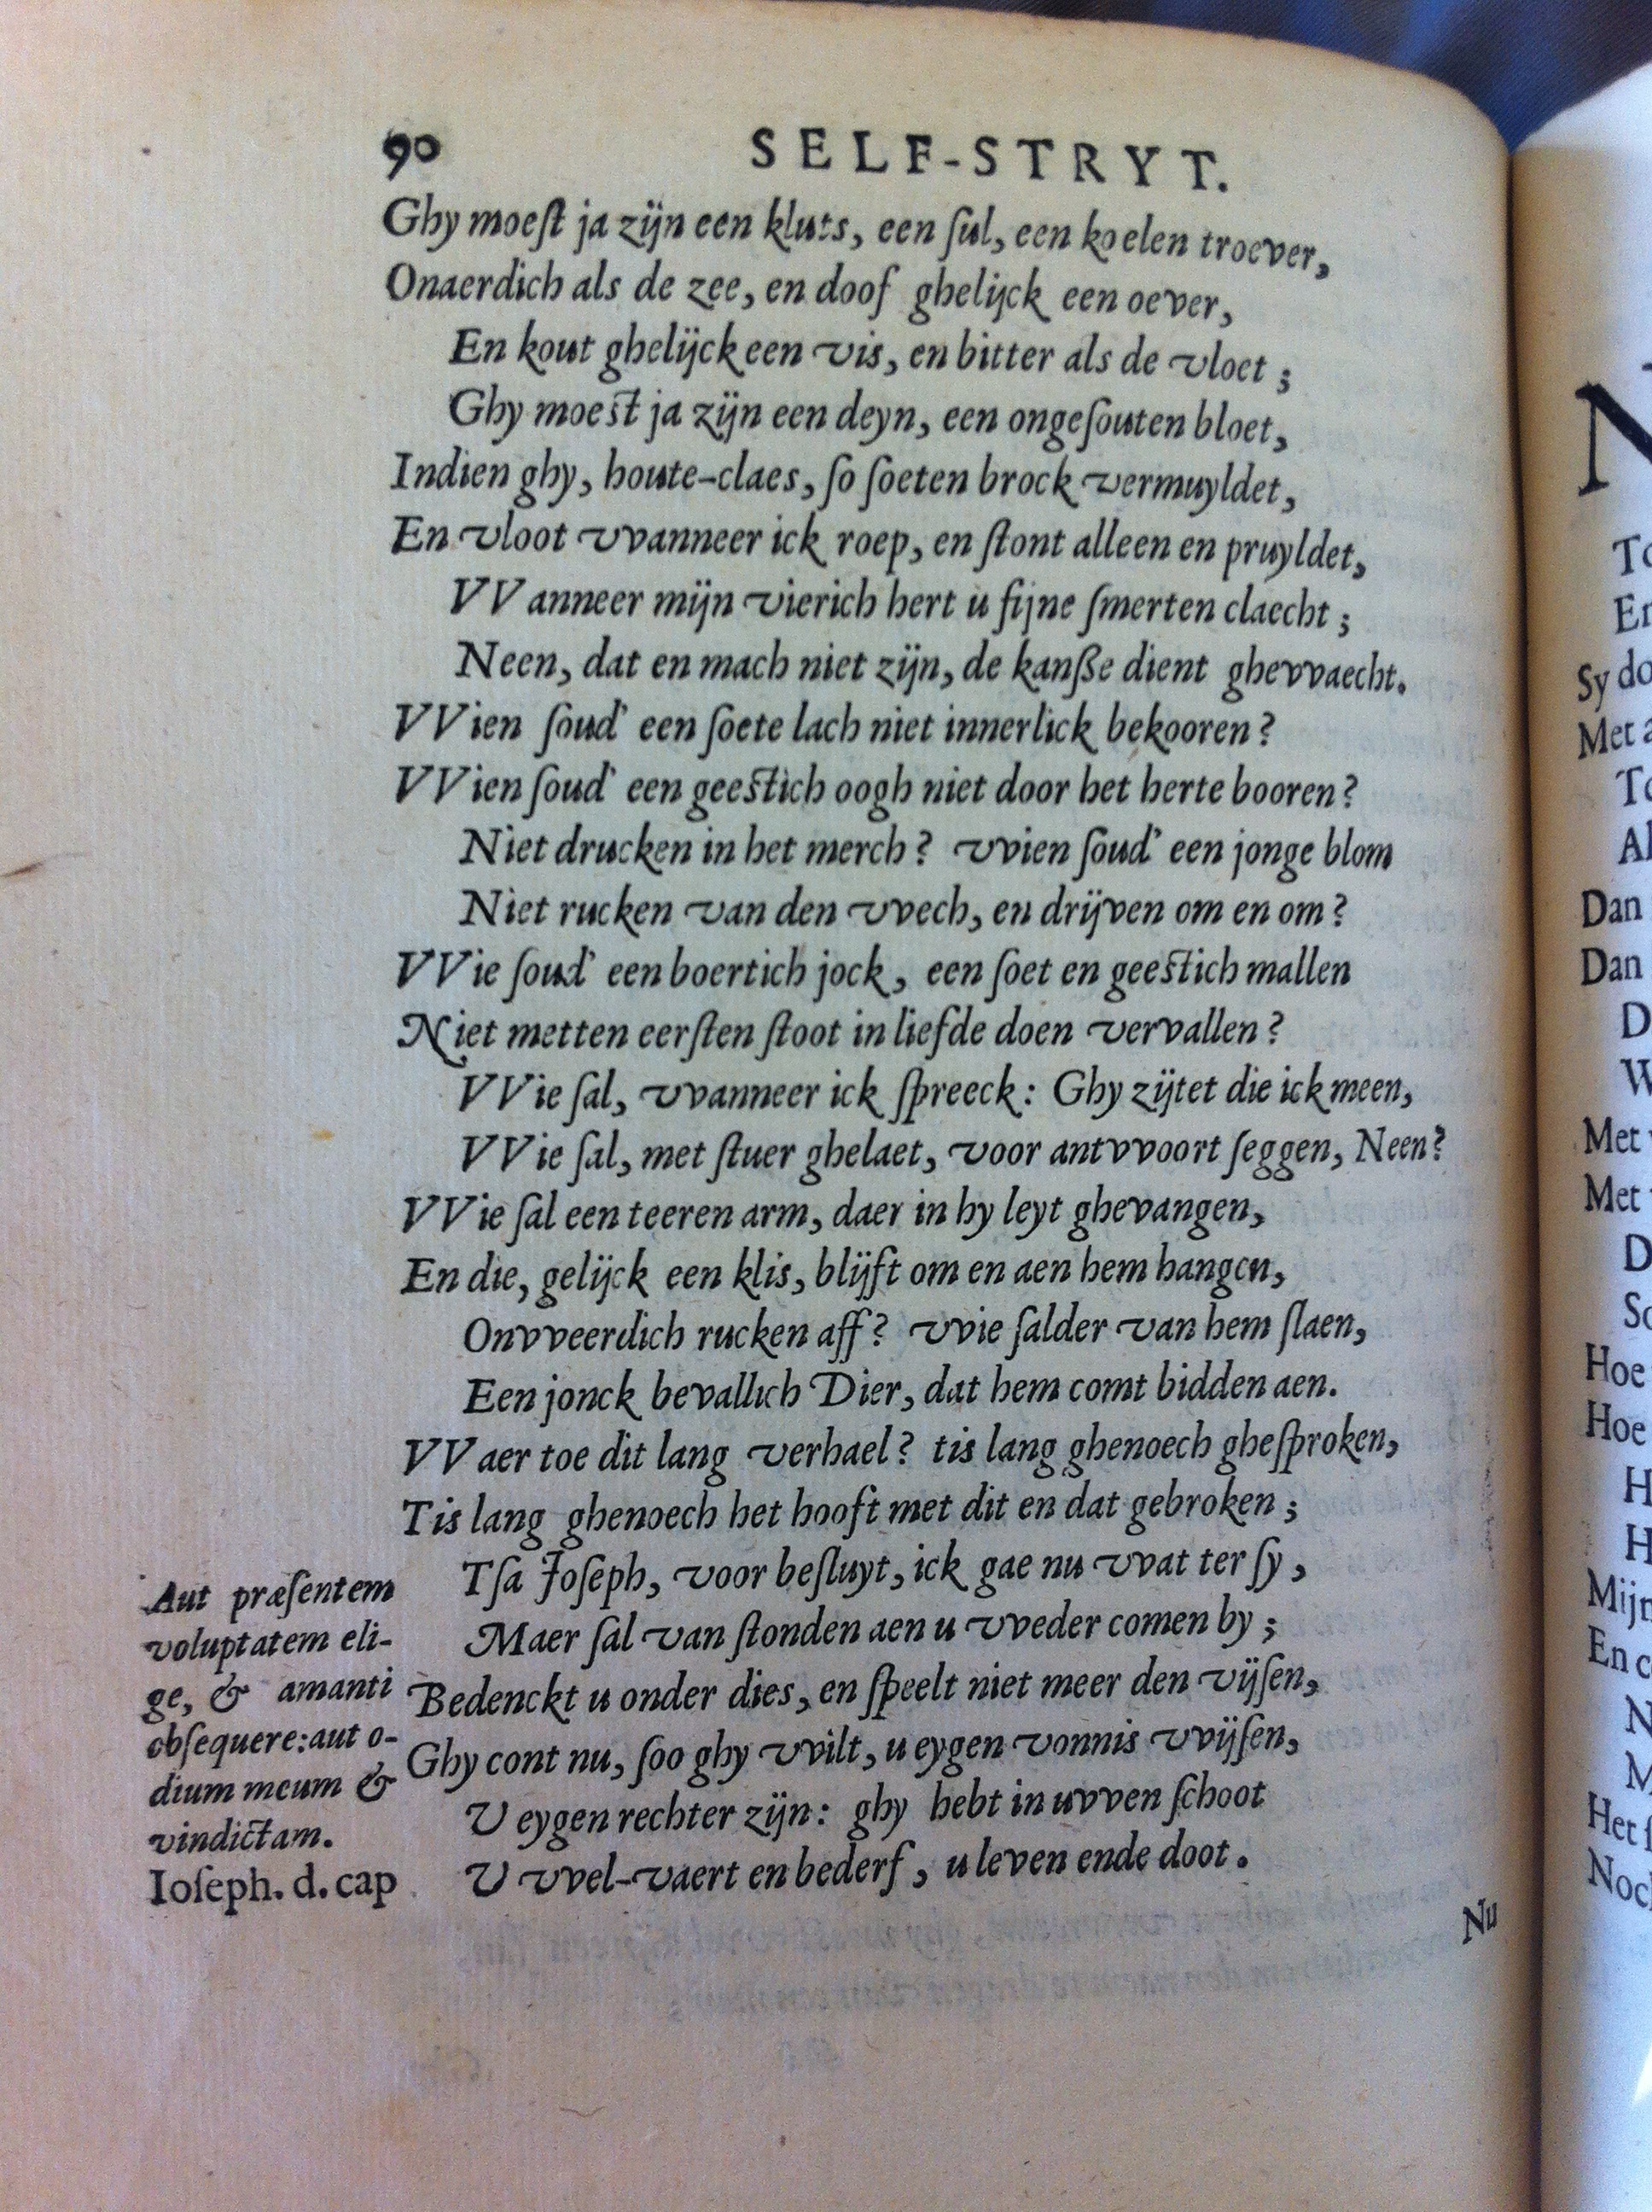 90 SELF-STRYT.
Ghy moeſt ja zijn een kluts, een ſul, een koelen troever,
Onaerdich als de zee, en doof ghelijck een oever,
En kout ghelijck een vis, en bitter als de vloet;
Ghy moeſt ja zijn een deyn, een ongeſouten bloet,
Indien ghy, houte-claes, ſo ſoeten brock vermuyldet,
En vloot vvanneer ick roep, en ſtont alleen en pruyldet,
VVanneer mijn vierich hert u ſijne ſmerten claecht;
Neen, dat en mach niet zijn, de kanſſe dient ghevvaecht.
VVien ſoud' een ſoete lach niet innerlick bekooren?
VVien ſoud' een geeſtich oogh niet door het herte booren?
Niet drucken in het merch? vvien ſoud' een jonge blom
Niet rucken van den vvech, en drijven om en om?
VVie ſoud' een boertich jock, een ſoet en geeſtich mallen
Niet metten eerſten ſtoot in liefde doen vervallen?
VVie ſal, vvanneer ick ſpreeck: Ghy zijtet die ick meen,
VVie ſal, met ſtuer ghelaet, voor antvvoort ſeggen, Neen?
VVie ſal een teeren arm, daer in hy leyt ghevangen,
En die, gelijck een klis, blijft om en aen hem hangen,
Onvveerdich rucken aff? vvie ſalder van hem ſlaen,
Een jonck bevallich Dier, dat hem comt bidden aen.
VVaer toe dit lang verhael? tis lang ghenoech gheſproken,
Tis lang ghenoech het hooft met dit en dat gebroken;
Tſa Joſeph, voor beſluyt, ick gae nu vvat ter ſy,
Maer ſal van ſtonden aen u vveder comen by;
Bedenckt u onder dies, en ſpeelt niet meer den vijſen,
Ghy cont nu, ſoo ghy vvilt, u eygen vonnis vvijſen,
U eygen rechter zijn: ghy hebt in uvven ſchoot
U vvel-vaert en bederf, u leven ende doot.
Nu
Aut præſentem
voluptatem eli-
ge, & amanti
obſequere: aut o-
dium meum &
vindictam.
Ioſeph. d. cap
N
To
En
Sy do
Met
To
Al
Dan
Dan
D
W
Met
Met
D
So
Hoe
Hoe
H
H
Mijn
En
N
M
Het
Noch